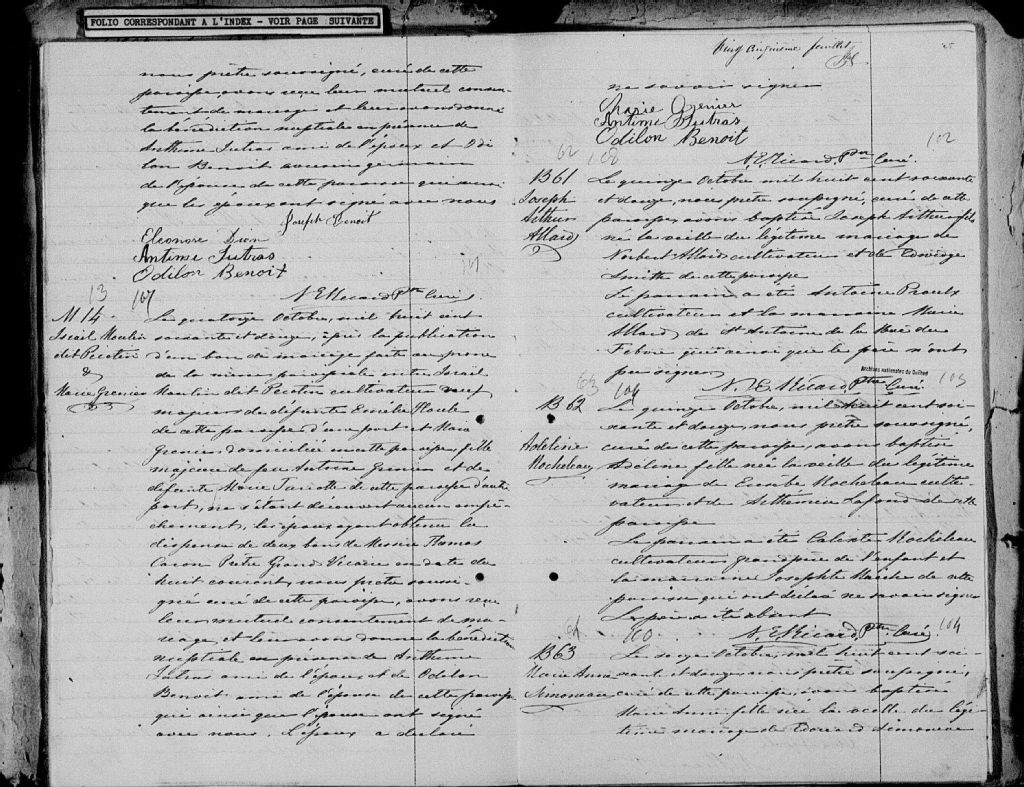 FOLIO CORRESPONDANT A L'INDEX - VOIR PAGE SUIVANTE
nous prêtre soussigné, curé de cette
paroisse, avons reçu leur mutuel consen-
tement de mariage et leur avons donné
la bénédiction nuptiale en présence de
Anthime Jutras ami de l'époux et Odi
lon Benoit cousin germain
de l'épouse de cette paroisse qui ainsi
que les époux ont signé avec nous
Joseph Benoit
Eleonore
Antime Jutras
Odilon Benoit
N. E. Ricard Ptre Curé
13 107
M 14
Israil Moulin
dit Picotin
&
Marie Grenier
Le quatorze Octobre, mil huit cent
soixante et douze, après la publication
d'un ban de mariage faite au prone
de la messe paroissiale entre Israil
Moulin dit Picotin cultivateur veuf
majeur de defunte Emélie
de cette paroisse d'une part et Marie
Grenier domiciliée en cette paroisse, fille
majeure de feu Antoine Grenier et de
defunte Marie de cette paroisse d'autre
part, ne s'étant découvert aucun empê-
chement, les époux ayant obtenu la
dispense de deux bans de Messire Thomas
Caron Prêtre Grand Vicaire en date du
huit courant, nous prêtre soussi-
gné curé de cette paroisse, avons reçu
leur mutuel consentement de ma-
riage, et leur avons donné la bénédiction
nuptiale en présence de Anthime
Jutras ami de l'époux et de Odilon
Benoit ami de l'épouse de cette paroisse
qui ainsi que l'épouse ont signé
avec nous. L'époux a déclaré
Vingt cinquième feuillet
ne savoir signer
Marie Grenier
Antime Jutras
Odilon Benoit
N. E. Ricard, Ptre Curé
102
62 108
B61
Joseph
Arthur
Allard
Le quinze Octobre mil huit cent soixante
et douze, nous prêtre soussigné, curé de cette
paroisse, avons baptisé Joseph Arthur fils
né la veille du légitime mariage de
Norbert Allard cultivateur et de Edwidge
Smith de cette paroisse
Le parrain a été Antoine Proulx
cultivateur et la marraine Marie
Allard, de St Antoine de la Baie du
Febvre qui ainsi que le père n'ont
pu signer
Archives nationales du Québec
N. E. Ricard Ptre Curé
103
63 109
B 62
Adeline
Rocheleau
Le quinze Octobre, mil huit cent soi-
xante et douze, nous prêtre soussigné,
curé de cette paroisse, avons baptisé
Adeline fille née la veille du légitime
mariage de Eusèbe Rocheleau culti-
vateur et de Arthémise Lafond de cette
paroisse
Le parrain a été Calixte Rocheleau
cultivateur grand père de l'enfant et
la marraine Josephte de cette
paroisse qui ont déclaré ne savoir signer
Le père a été absent
N. E. Ricard, Ptre Curé
104
64 110
B63
Marie Anne
Simoneau
Le seize Octobre mil huit cent soi-
xante et douze, nous prêtre soussigné,
curé de cette paroisse, avons baptisé
Marie Anne fille née la veille du légi-
time mariage de Edouard Simoneau